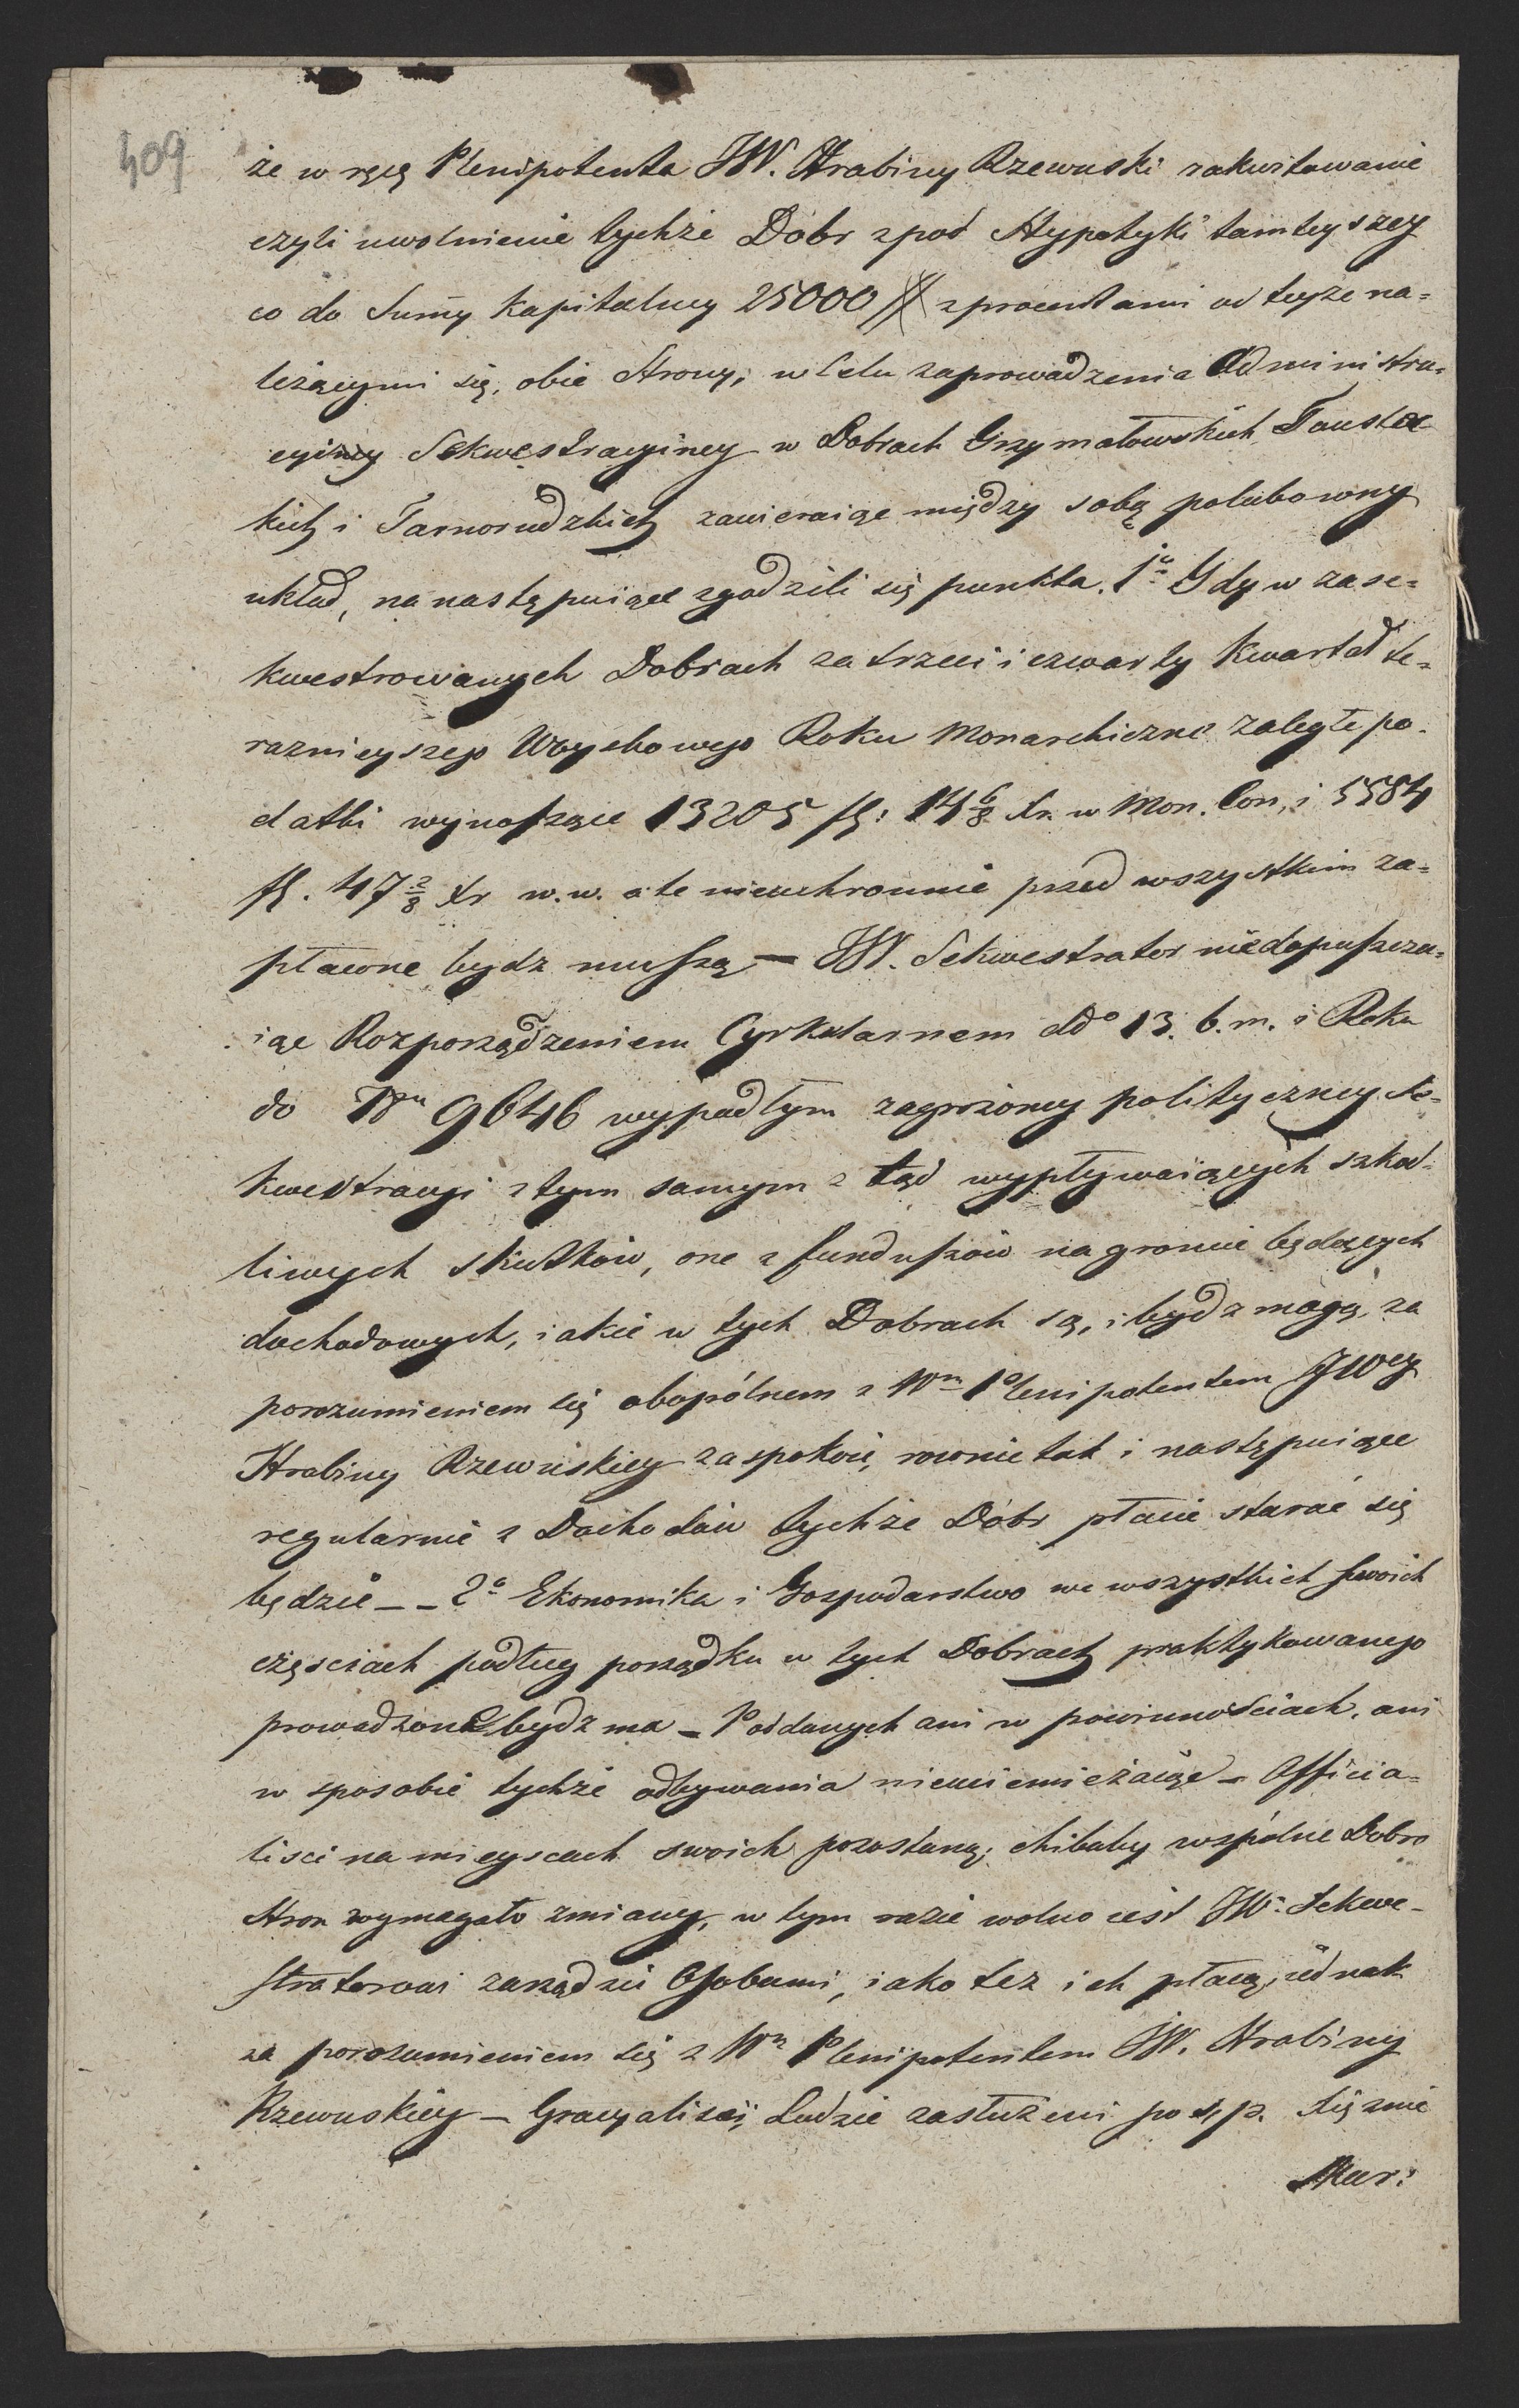 409
że w ręcę Plenipotenta JW. Hrabiny Rzewuski zakwitowanie
czyli uwolnienie tychże Dóbr z pod Hypotyki tamteyszey
co do Summy Kapitalney 25000 # z procentami od teyże na=
leżącymi się, obie Strony, w Celu zaprowadzenia Administra=
cyiney Sekwestracyiney w Dobrach Grzymałowskich Touste
kich i Tarnorudzkich zawieraiąc między sobą polubowny
układ, na następuiące zgodzili się punkta. 1o Gdy w zase=
kwestrowanych Dobrach za trzeci i czwarty Kwartał te=
raznieyszego Woyskowego Roku Monarchiczne zaległe po=
datki wynoszące 13205 fl: 14 6/8 Xr. w Mon. Con, i 5584
fl. 47 2/8 Xr w.w. a te nieuchronnie przed wszystkim za=
płacone bydz muszą — JW. Sekwestrator niedopuszcza=
iąc Rozporządzeniem Cyrkularnem ddo 13. b. m. i Roku
do Nru 9646 wypadłym zagrożoney polityczney Se=
kwestracyi z tym samym z tąd wypływaiących szkod=
liwych skutków, one z funduszów na gronie będących
dochodowych, iakie w tych Dobrach są, i bydz mogą, za
porozumieniem się obopólnem z Wm Plenipotentem JWey
Hrabiny Rzewuskiey zaspokoi, rownie tak i następuiące
regularnie z Dochodów tychże Dóbr płacić starać się
będzie – – 2o Ekonomika i Gospodarstwo we wszystkich swoich
częściach podług porządku w tych Dobrach praktykowanego
prowadzone bydz ma – Poddanych ani w powinnościach, ani
w sposobie tychże odbywania nieuciemiężaiąc – Officia=
liści na mieyscach swoich pozostaną; chibaby wspólne Dobro
Stron wymagało zmiany, w tym razie wolno iest JW. Sekwe=
stratorowi zarządzić Osobami, iako też ich płacą, iednak
za porozumieniem się z Wm Plenipotentem JW. Hrabiny
Rzewuskiey – Gracyaliści, Ludzie zasłużeni po ś. p. Xięznie
Mar: